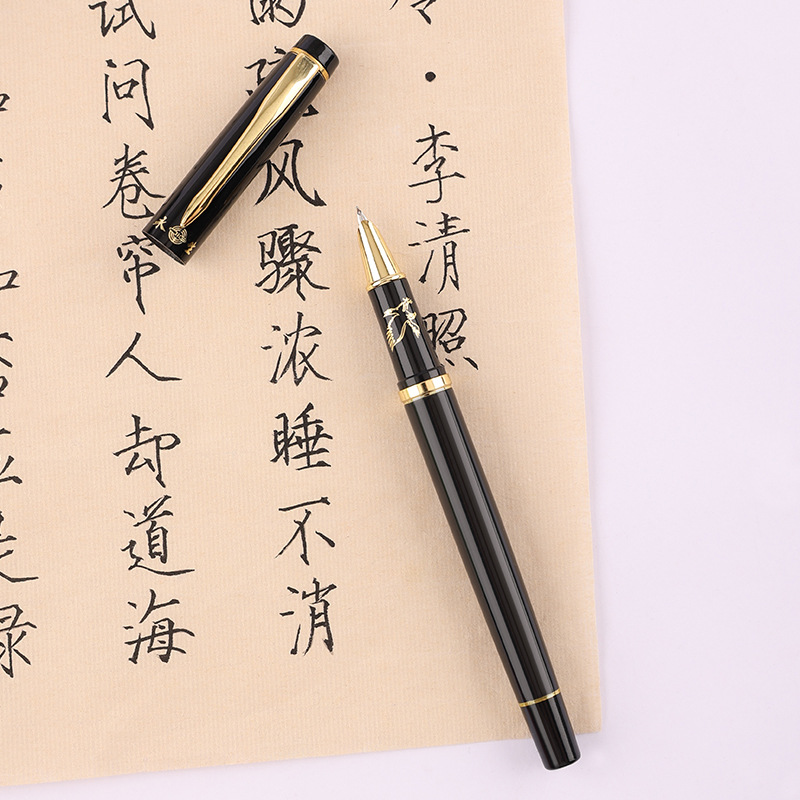 · 李清照
雨疏风骤浓睡不消
试问卷帘人却道海
永生